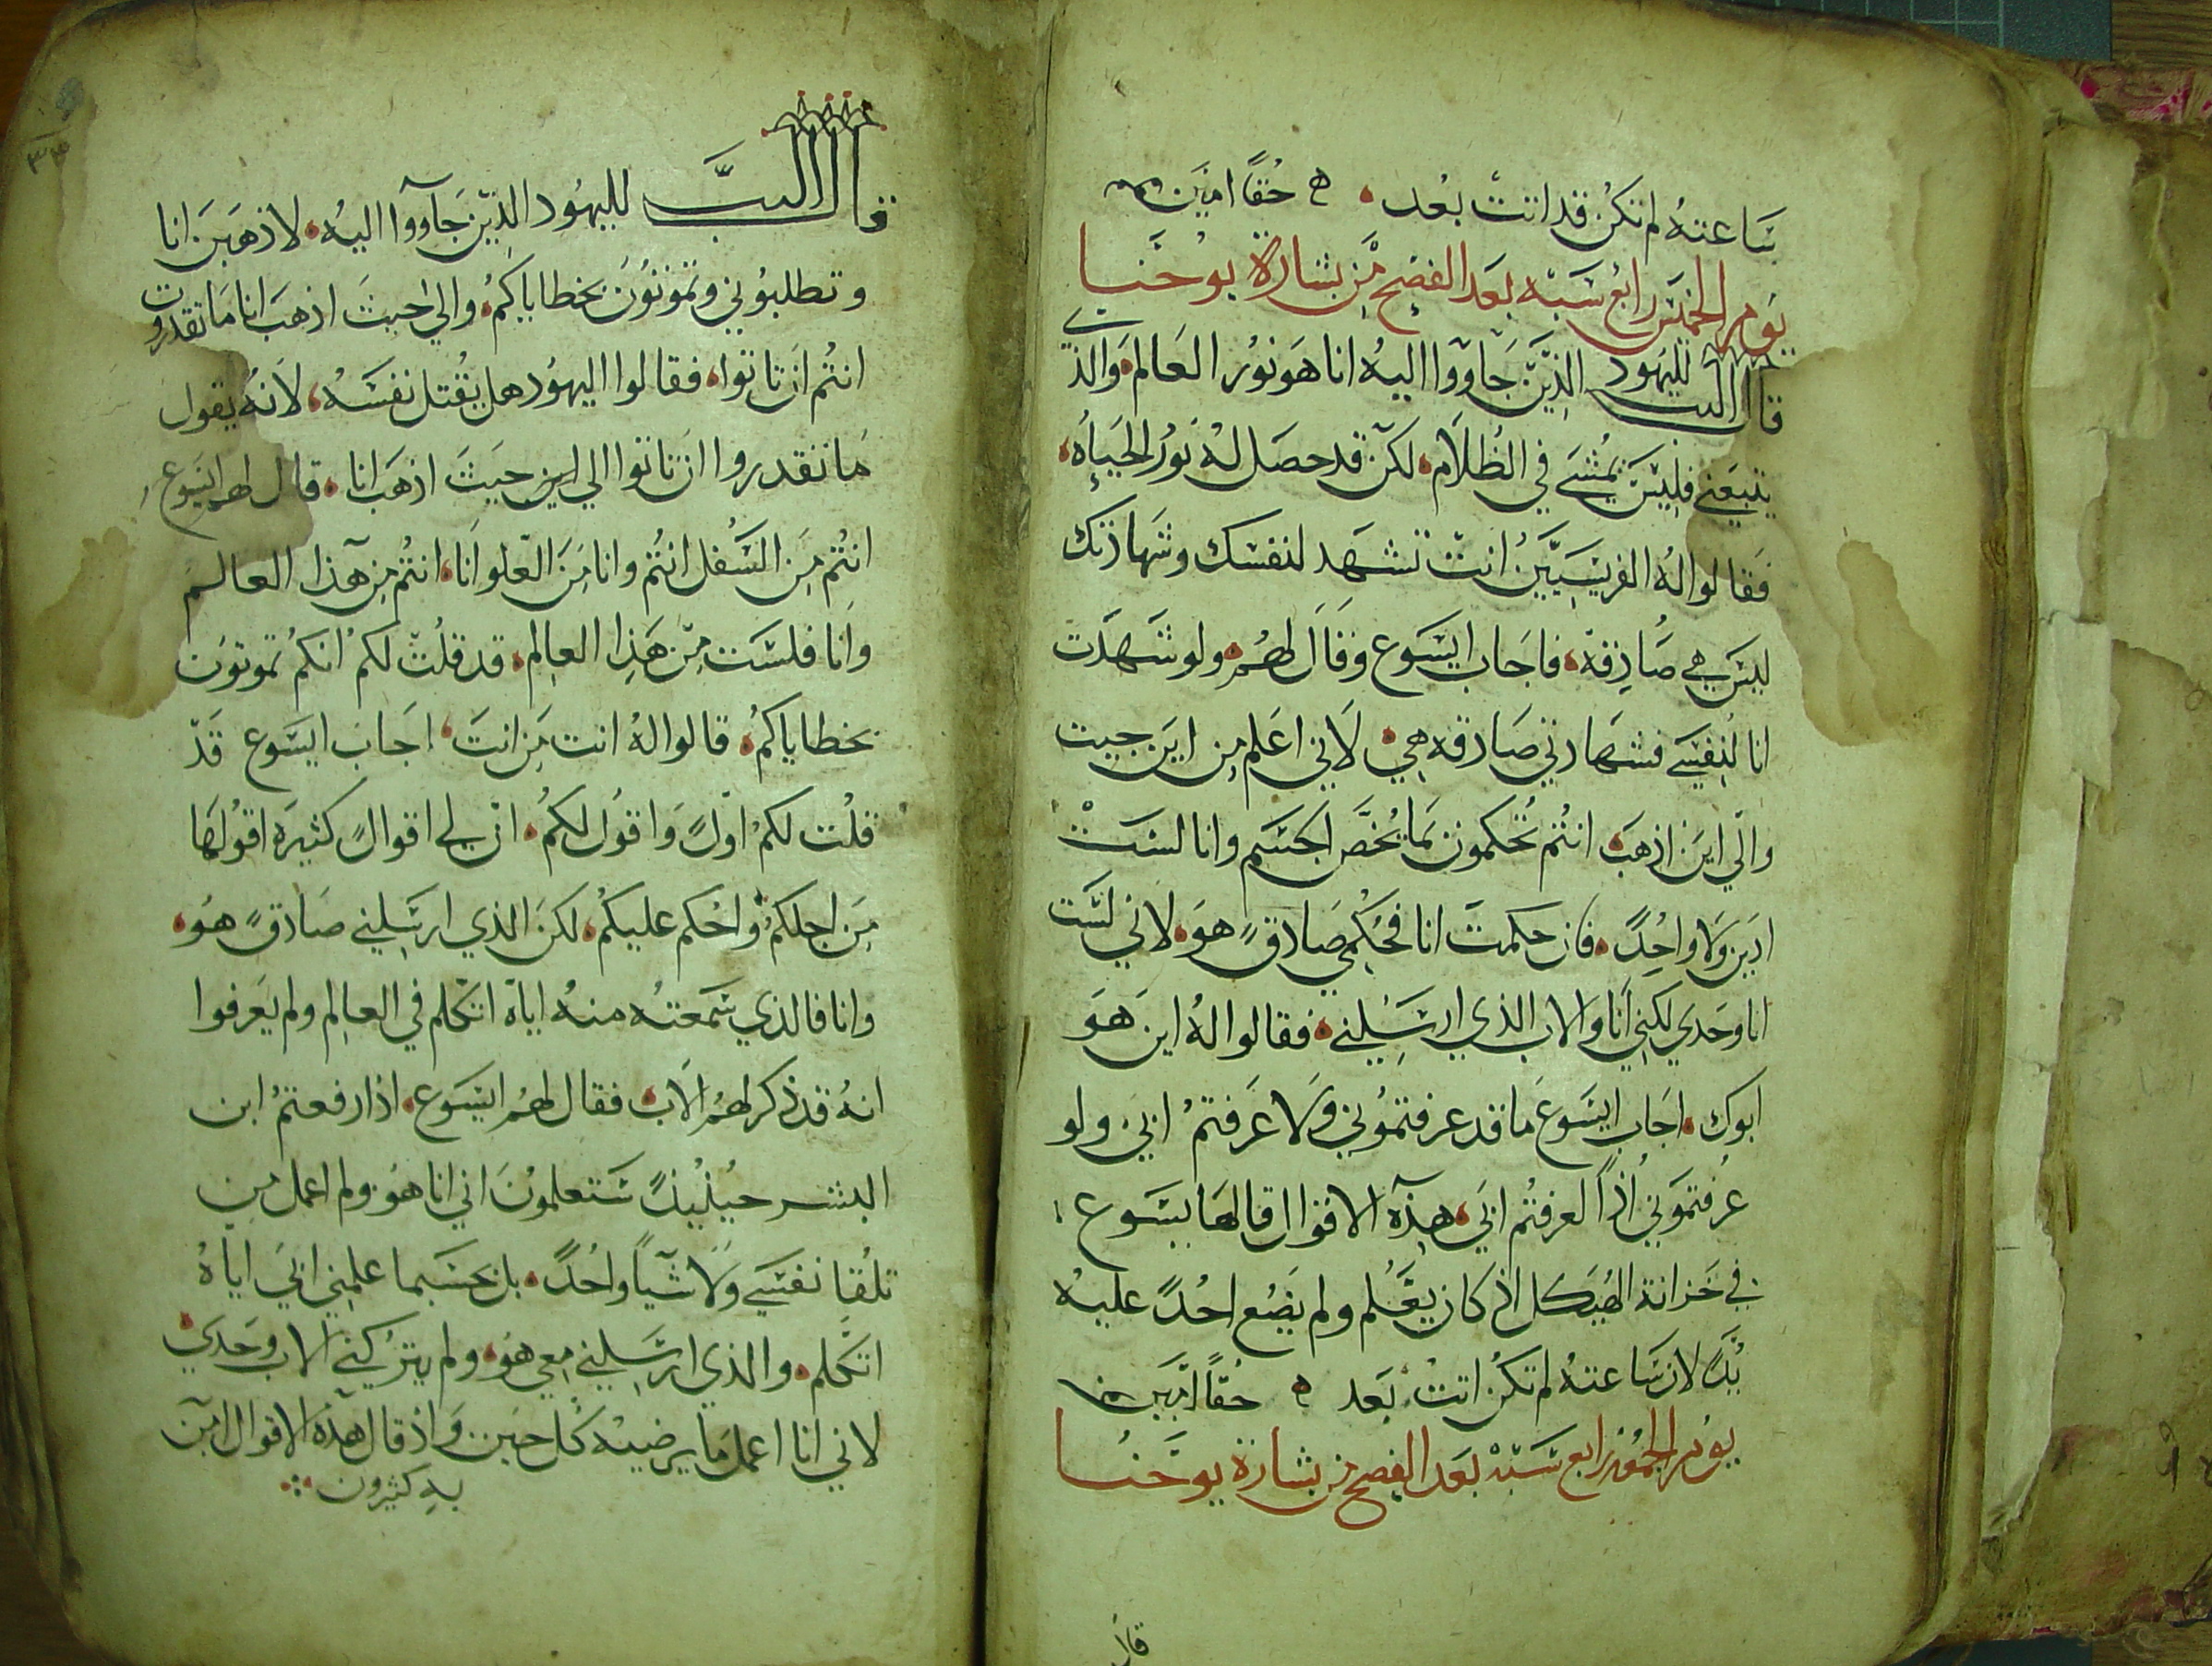 ساعته لم تكن قد اتت بعد ۞ حقاً امين
يوم الخميس رابع سبه بعد الفصح من بشارة يوحنا
قال الرب لليهود الذين جاووا اليه انا هو نور العالم والذي
يتبعني فليس يمشي في الظلام لكن قد حصل له نور الحياه
فقالوا له الفريسيين انت تشهد لنفسك وشهادتك
ليس هي صادقه فاجاب ايسوع وقال لهم ولو شهدت
انا لنفسي فشهادتي صادقه هي لاني اعلم من اين جيت
والي اين اذهب انتم تحكمون بما يخص الجسم وانا لست
ادين ولا واحدً فان حكمت انا فحكمي صادقً هو لاني لست
انا وحدي لكني انا والاب الذي ارسلني فقالوا له اين هو
ابوك اجاب ايسوع ما قد عرفتموني ولا عرفتم ابي ولو
عرفتموني اذاً لعرفتم ابي هذه الاقوال قالها يسوع
في خزانة الهيكل اذ كان يعلم ولم يضع احدً عليه
يدً لان ساعته لم تكن اتت بعد ۞ حقاً امين
يوم الجمعه رابع سبة بعد الفصح من بشارة يوحنا
قال
قال الرب لليهود الذين جآووا اليه لاذهبن انا
وتطلبوني وتموتون بخطاياكم والي حيث اذهب انا ما تقدروت
انتم ان تاتوا فقالوا اليهود هل يقتل نفسه لانه يقول
ما تقدروا ان تاتوا الي اين حيث اذهب انا قال لهم ايسوع
انتم من السفل انتم وانا من العلو انا انتم من هذا العالم
وانا فلست من هذا العالم قد قلت لكم انكم تموتون
بخطاياكم قالوا له انت من انت اجاب ايسوع قد
قلت لكم اولً واقول لكم ان لي اقوالً كثيره اقولها
من اجلكم واحكم عليكم لكن الذي ارسلني صادقً هو
وانا فالذي سمعته منه اياه اتكلم في العالم ولم يعرفوا
انه قد ذكر لهم الاب فقال لهم ايسوع اذا رفعتم ابن
البشر حينيذً ستعلمون اني انا هو ولم اعمل من
تلقا نفسي ولا شياً واحدً بل بحسبما علمني ابي اياه
اتكلم والذي ارسلني معي هو ولم يتركني الاب وحدي
لاني انا اعمل ما يرضيه كل حين واذ قال هذه الاقوال امن
به كثيرون